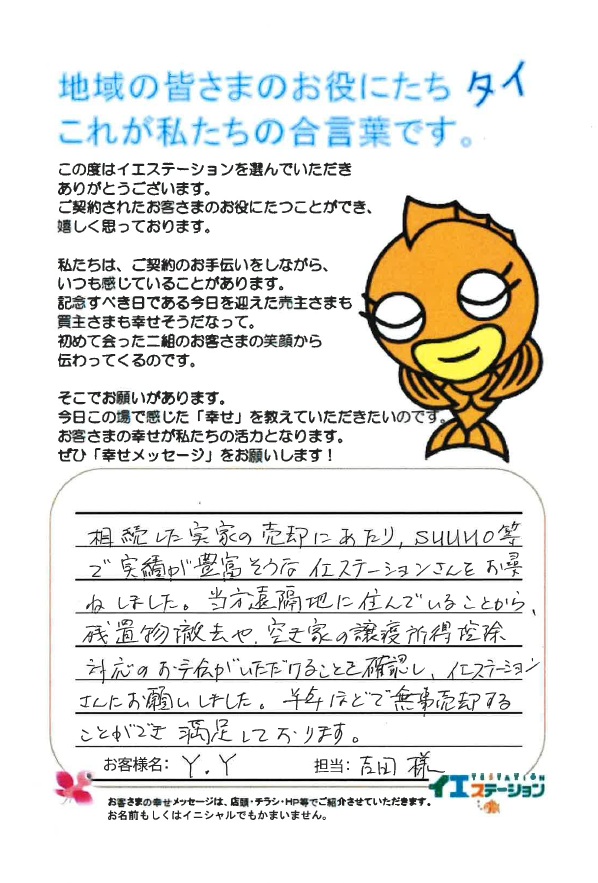 地域の皆さまのお役にたち タイ
これが私たちの合言葉です。
この度はイエステーションを選んでいただき
ありがとうございます。
ご契約されたお客さまのお役にたつことができ、
嬉しく思っております。
私たちは、ご契約のお手伝いをしながら、
いつも感じていることがあります。
記念すべき日である今日を迎えた売主さまも
買主さまも幸せそうだなって。
初めて会った二組のお客さまの笑顔から
伝わってくるのです。
そこでお願いがあります。
今日この場で感じた「幸せ」を教えていただきたいのです。
お客さまの幸せが私たちの活力となります。
ぜひ「幸せメッセージ」をお願いします！
相続した実家の売却にあたり、SUUMO等
で実績が豊富そうなイエステーションさんをお尋
ねしました。当方遠隔地に住んでいることから、
残置物撤去や、空き家の譲渡所得控除
対応のお手伝いがいただけることを確認し、イエステーション
さんにお願いしました。半年ほどで無事売却する
ことができ満足しております。
お客様名: Y.Y 担当: 吉田 様
YESTATION
イエステーション
お客さまの幸せメッセージは、店頭・チラシ・HP等でご紹介させていただきます。
お名前もしくはイニシャルでもかまいません。